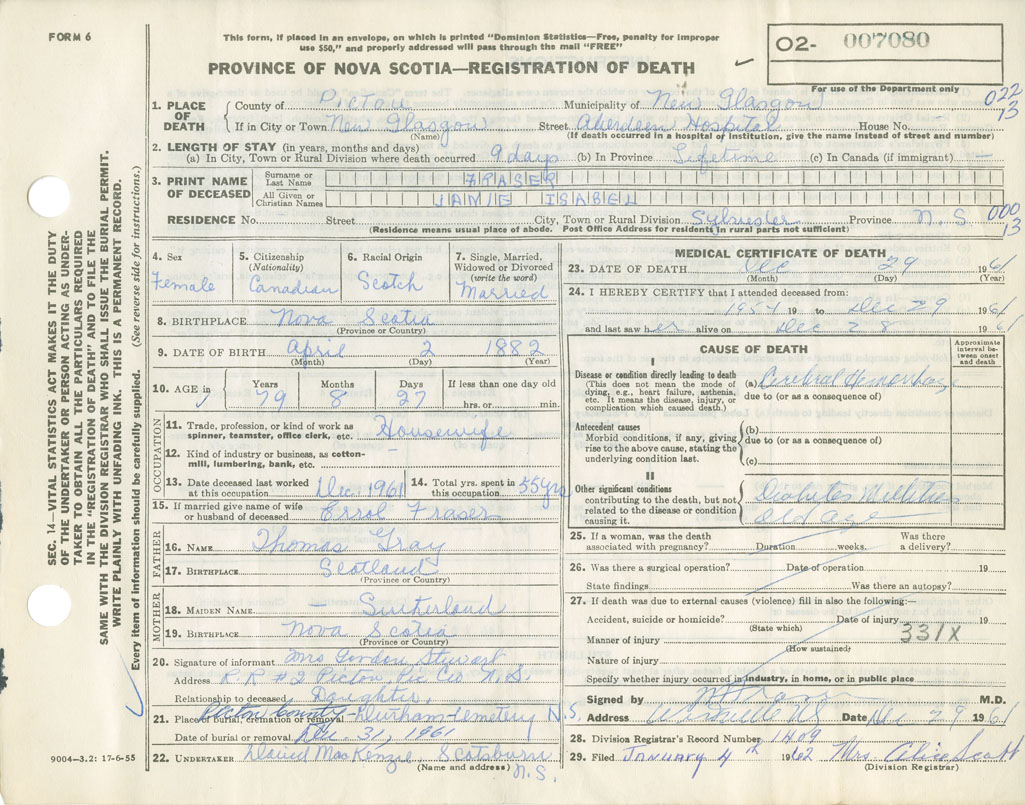 FORM 6
This form, if placed in an envelope, on which is printed "Dominion Statistics—Free, penalty for improper
use $50," and properly addressed will pass through the mail "FREE"
PROVINCE OF NOVA SCOTIA—REGISTRATION OF DEATH
02- 007080
For use of the Department only
022
13
SEC. 14—VITAL STATISTICS ACT MAKES IT THE DUTY
OF THE UNDERTAKER OR PERSON ACTING AS UNDER-
TAKER TO OBTAIN ALL THE PARTICULARS REQUIRED
IN THE "REGISTRATION OF DEATH" AND TO FILE THE
SAME WITH THE DIVISION REGISTRAR WHO SHALL ISSUE THE BURIAL PERMIT.
WRITE PLAINLY WITH UNFADING INK. THIS IS A PERMANENT RECORD.
Every item of information should be carefully supplied. (See reverse side for instructions.)
1. PLACE OF DEATH County of Pictou Municipality of New Glasgow
If in City or Town New Glasgow Street Aberdeen Hospital House No.
(Name) (If death occurred in a hospital or institution, give the name instead of street and number)
2. LENGTH OF STAY (in years, months and days)
(a) In City, Town or Rural Division where death occurred 9 days (b) In Province Lifetime (c) In Canada (if immigrant) —
3. PRINT NAME OF DECEASED
Surname or Last Name FRASER
All Given or Christian Names JAMIE ISABEL
RESIDENCE No. Street City, Town or Rural Division Sylvester Province N. S.
000
13
(Residence means usual place of abode. Post Office Address for residents in rural parts not sufficient)
4. Sex Female
5. Citizenship (Nationality) Canadian
6. Racial Origin Scotch
7. Single, Married, Widowed or Divorced (write the word) Married
8. BIRTHPLACE Nova Scotia
(Province or Country)
9. DATE OF BIRTH April 2 1882
(Month) (Day) (Year)
10. AGE in Years 79 Months 8 Days 27 If less than one day old
hrs. or min.
OCCUPATION
11. Trade, profession, or kind of work as spinner, teamster, office clerk, etc. Housewife
12. Kind of industry or business, as cotton-mill, lumbering, bank, etc.
13. Date deceased last worked at this occupation Dec. 1961
14. Total yrs. spent in this occupation 55 yrs
15. If married give name of wife or husband of deceased Errol Fraser
FATHER
16. NAME Thomas Gray
17. BIRTHPLACE Scotland
(Province or Country)
MOTHER
18. MAIDEN NAME — Sutherland
19. BIRTHPLACE Nova Scotia
(Province or Country)
20. Signature of informant Mrs Gordon Stewart
Address R. R #2 Pictou, Pic Co N. S.
Relationship to deceased Daughter
21. Place of burial, cremation or removal Pictou County Durham Cemetery N.S.
Date of burial or removal Dec. 31, 1961
22. UNDERTAKER David MacKenzie Scotsburn
(Name and address) N.S.
9004—3.2: 17-6-55
MEDICAL CERTIFICATE OF DEATH
23. DATE OF DEATH Dec 29 1961
(Month) (Day) (Year)
24. I HEREBY CERTIFY that I attended deceased from:
1954 19 to Dec 29 1961
and last saw her alive on Dec 28 1961
CAUSE OF DEATH
Approximate interval between onset and death
I
Disease or condition directly leading to death
(This does not mean the mode of dying, e.g., heart failure, asthenia, etc. It means the disease, injury, or complication which caused death.)
(a) Cerebral Hemorrhage
due to (or as a consequence of)
Antecedent causes
Morbid conditions, if any, giving rise to the above cause, stating the underlying condition last.
(b)
due to (or as a consequence of)
(c)
II
Other significant conditions
contributing to the death, but not related to the disease or condition causing it.
Diabetes Mellitus
Old Age
25. If a woman, was the death associated with pregnancy? Duration weeks. Was there a delivery?
26. Was there a surgical operation? Date of operation 19
State findings Was there an autopsy?
27. If death was due to external causes (violence) fill in also the following:—
Accident, suicide or homicide? Date of injury 19
(State which)
331X
Manner of injury
(How sustained)
Nature of injury
Specify whether injury occurred in industry, in home, or in public place
Signed by M.D.
Address Date Dec 29 1961
28. Division Registrar's Record Number 1409
29. Filed January 4th 1962 Mrs Alice Scott
(Division Registrar)